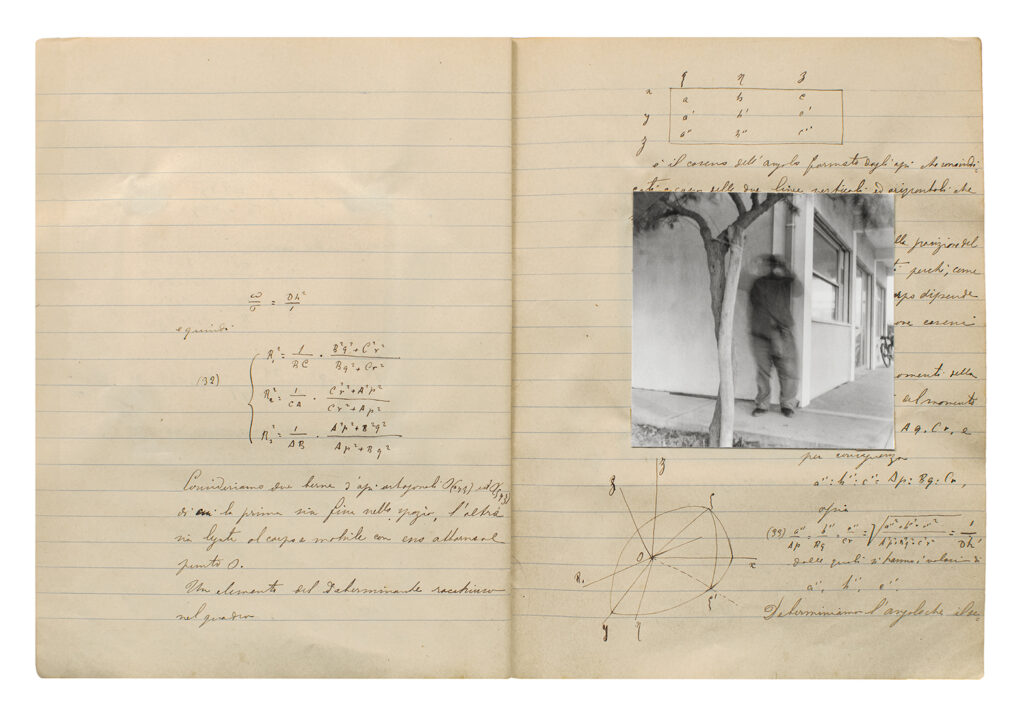 ω/σ = Dh²/
e quindi
(32) R₁² = 1/BC · B²q²+C²r²/Bq²+Cr²
R₂² = 1/CA · C²r²+A²p²/Cr²+Ap²
R₃² = 1/AB · A²p²+B²q²/Ap²+Bq²
Consideriamo due terne d'assi ortogonali
di cui la prima sia fissa nello spazio, l'altra
sia legata al corpo e mobile con esso attorno al
punto O.
Un elemento del Determinante racchiuso
nel quadro
ξ η ζ
x a b c
y a' b' c'
z a'' b'' c''
è il coseno dell'angolo formato dagli assi che
delle due linee verticali ed orizzontali che
posizione del
perchè, come
dipende
coseni
momenti della
del momento
Aq. Cr. e
per conseguenza
a'' : b'' : c'' = Ap : Bq : Cr,
ossia
(33) a''/Ap = b''/Bq = c''/Cr = = 1/Dh
dalle quali si hanno i valori di
a'', b'', c''.
Determiniamo l'angolo che
z
ζ
O
x
R
y η